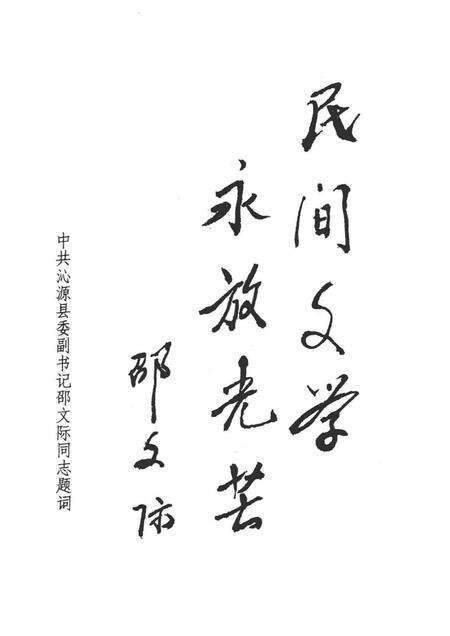 民间文学
永放光芒
邵文际
中共沁源县委副书记邵文际同志题词